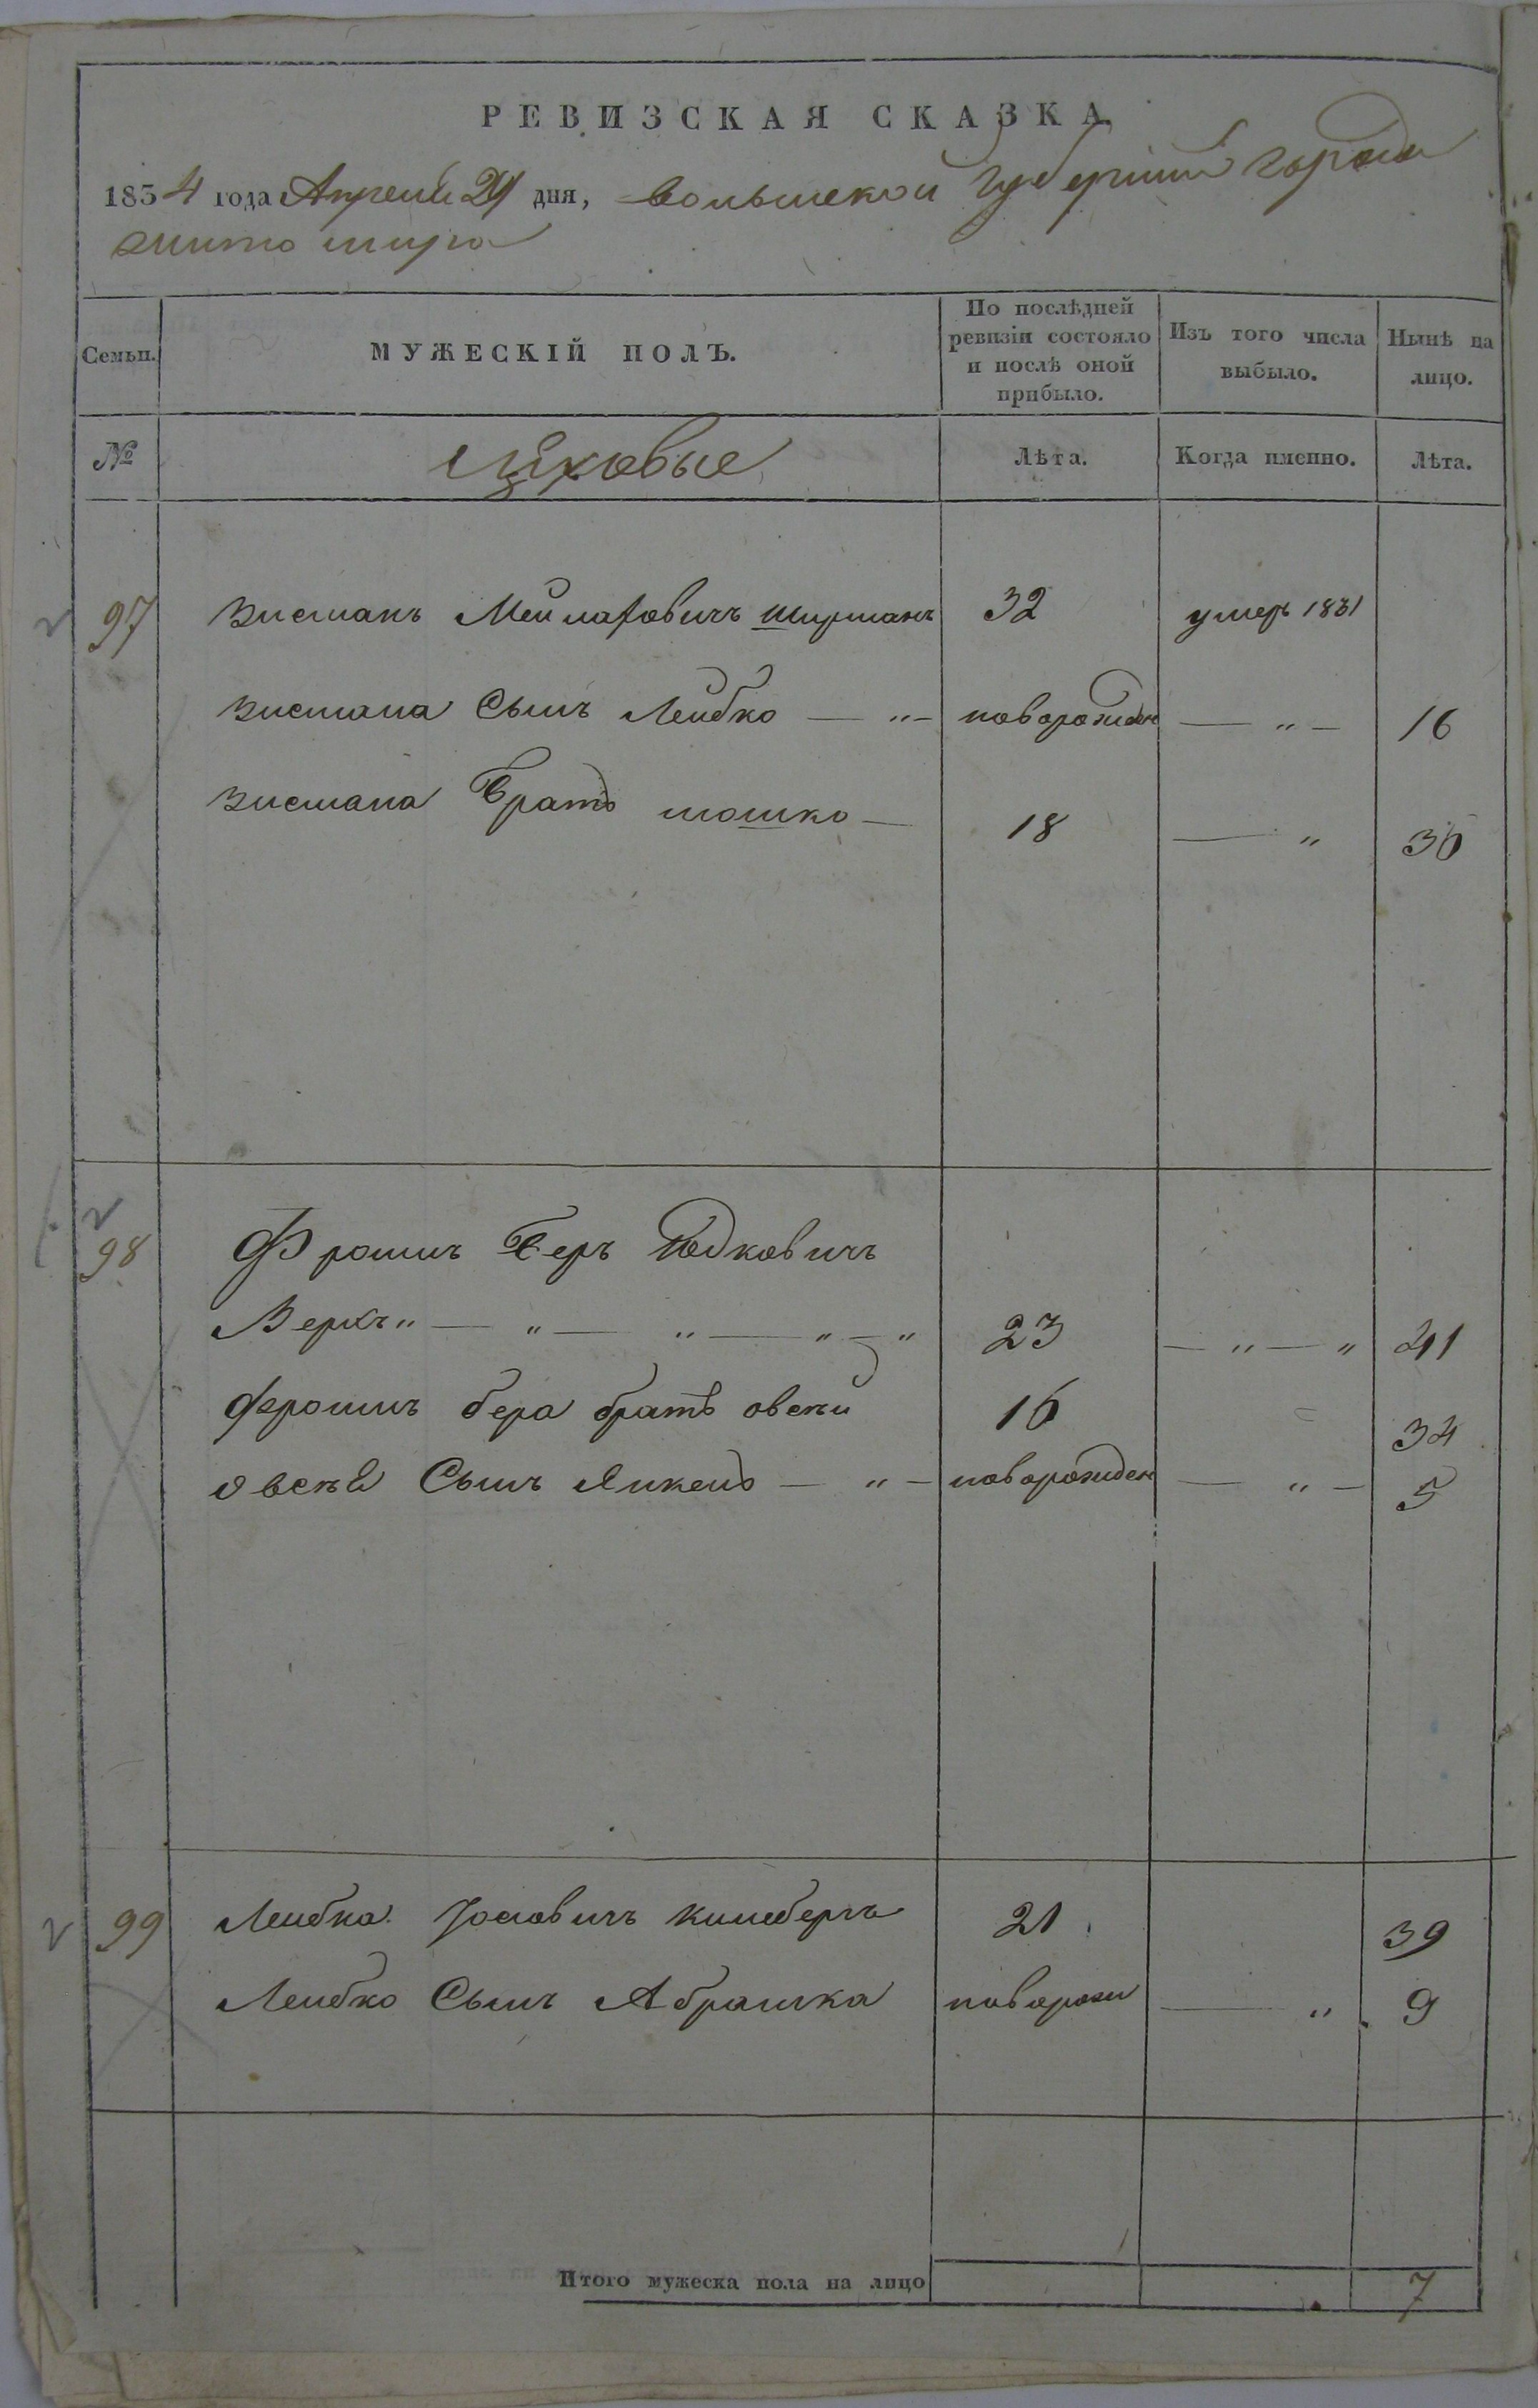 РЕВИЗСКАЯ СКАЗКА
1834 года Апреля 24 дня, волынской губернии города
житомира
Семьи.
МУЖЕСКІЙ ПОЛЪ.
По послѣдней
ревизіи состояло
и послѣ оной
прибыло.
Изъ того числа
выбыло.
Нынѣ на
лицо.
№
цеховые
Лѣта.
Когда именно.
Лѣта.
97 Зисманъ шурманъ 32 умеръ 1831
Зисмана Сынъ Лейбко — „ — новорожден — „ — 16
Зисмана Братъ мошко — 18 — „
98 Фроимъ Беръ
Беркъ „ — „ — „ — „ — „ 23 — „ — „ 41
Фроимъ бера братъ овсѣй 16 34
овсѣя Сынъ Янкель — „ — новорожден — „ — 5
99 Лейбка Іосіовичъ 21 39
Лейбко Сынъ Абрамка новорож — „ 9
Итого мужеска пола на лицо 7